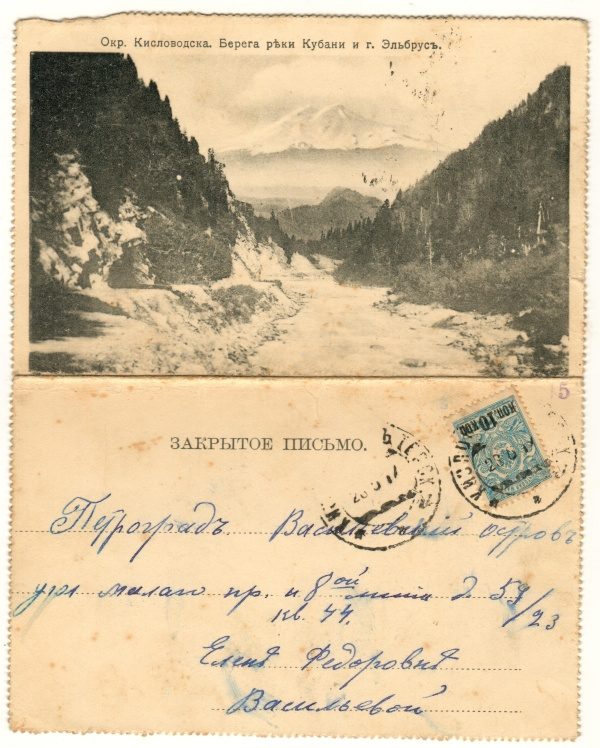 Окр. Кисловодска. Берега рѣки Кубани и г. Эльбрусъ.
5
коп. 10 коп.
ЗАКРЫТОЕ ПИСЬМО.
Петроградъ. Васильевскій островъ
малаго пр. и 8ой линіи д. 59/23
кв. 44.
Еленѣ Федоровнѣ
Васильевой